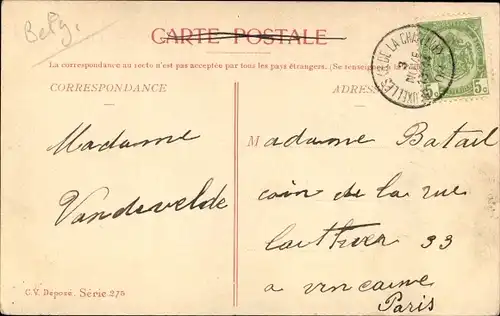 Belg.
CARTE POSTALE
La correspondance au recto n'est pas acceptée par tous les pays étrangers. (Se renseigner
CORRESPONDANCE
ADRESSE
5c 5c
Madame
Vandevelde
Madame Batail
coin de la rue
33
a vincenne
Paris
C.V. Déposé. Série 275